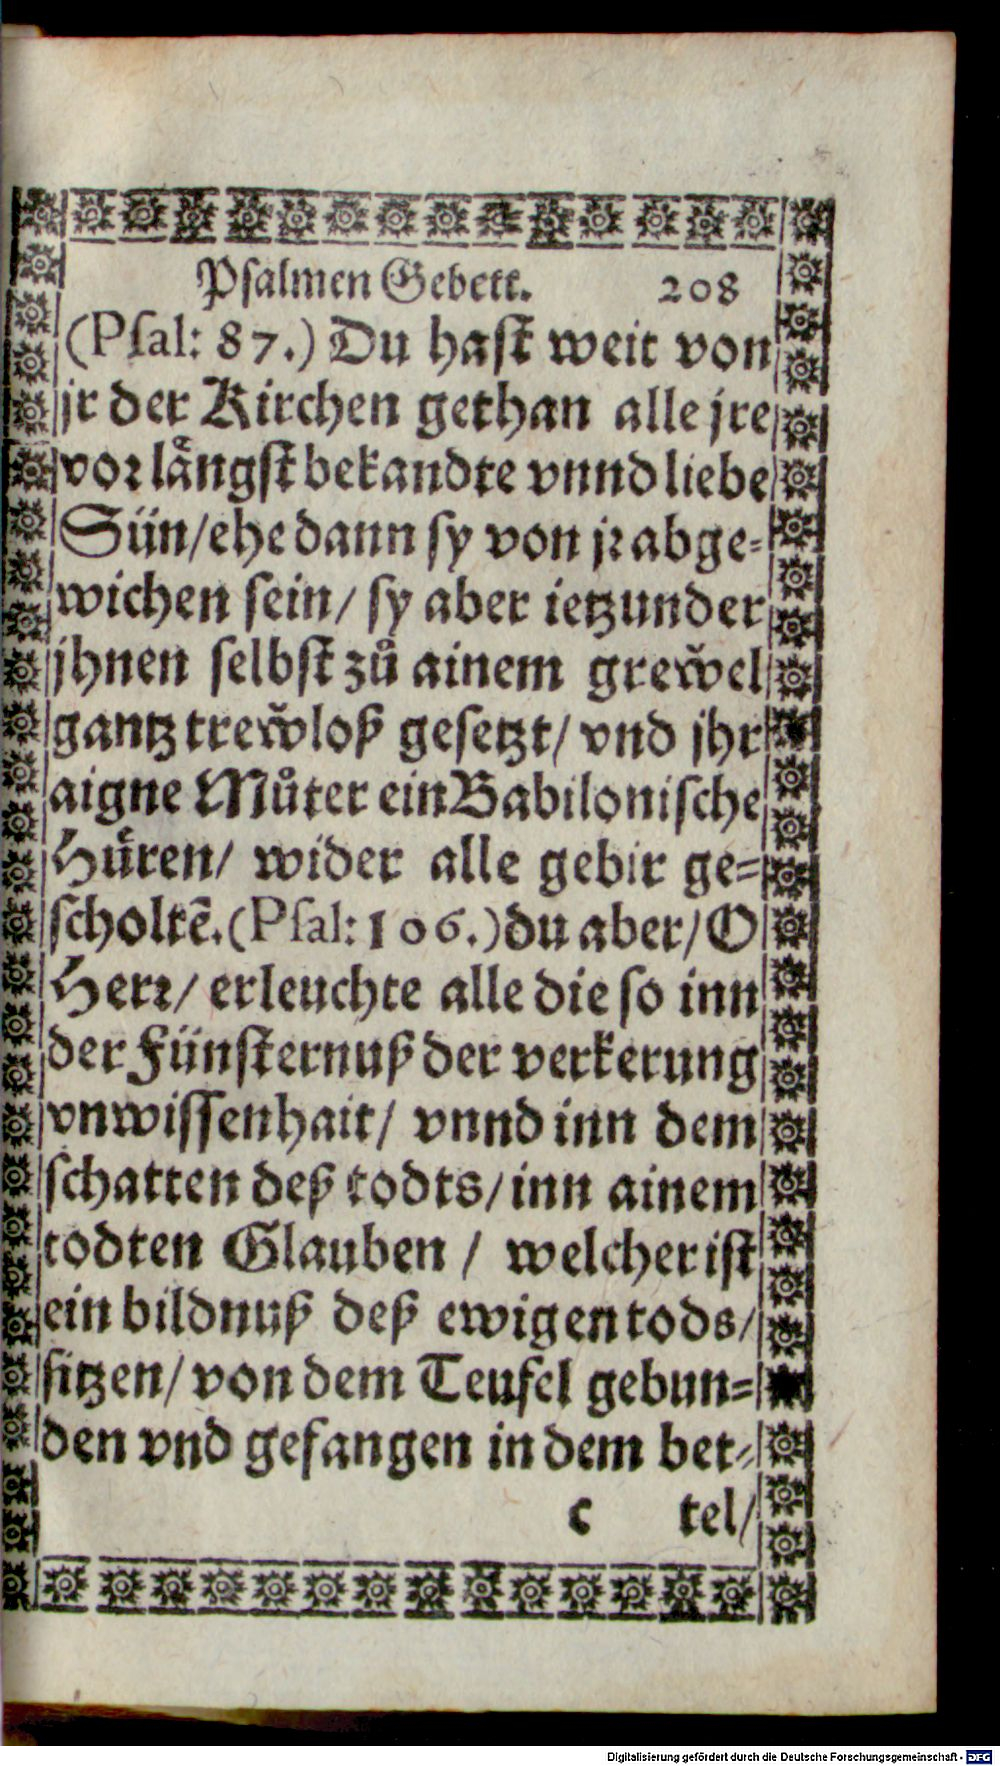 Psalmen Gebett. 208
(Psal: 87.) Du hast weit von
jr der Kirchen gethan alle jre
vor låͤngst bekandte vnnd liebe
Sün/ehe dann sy von jr abge-
wichen sein/ sy aber ietzunder
jhnen selbst zů ainem grew̌el
gantz trew̌loß gesetzt/ vnd jhr
aigne Můter ein Babilonische
Hůͤren/ wider alle gebir ge-
scholtē. (Psal: 106.) du aber/ O
Herr/ erleuchte alle die so inn
der Fünsternuß der verkerung
vnwissenhait/ vnnd inn dem
schatten deß todts/ inn ainem
todten Glauben / welcher ist
ein bildnuß deß ewigen tods/
sitzen/ von dem Teufel gebun-
den vnd gefangen in dem bet-
c tel/
Digitalisierung gefördert durch die Deutsche Forschungsgemeinschaft - DFG